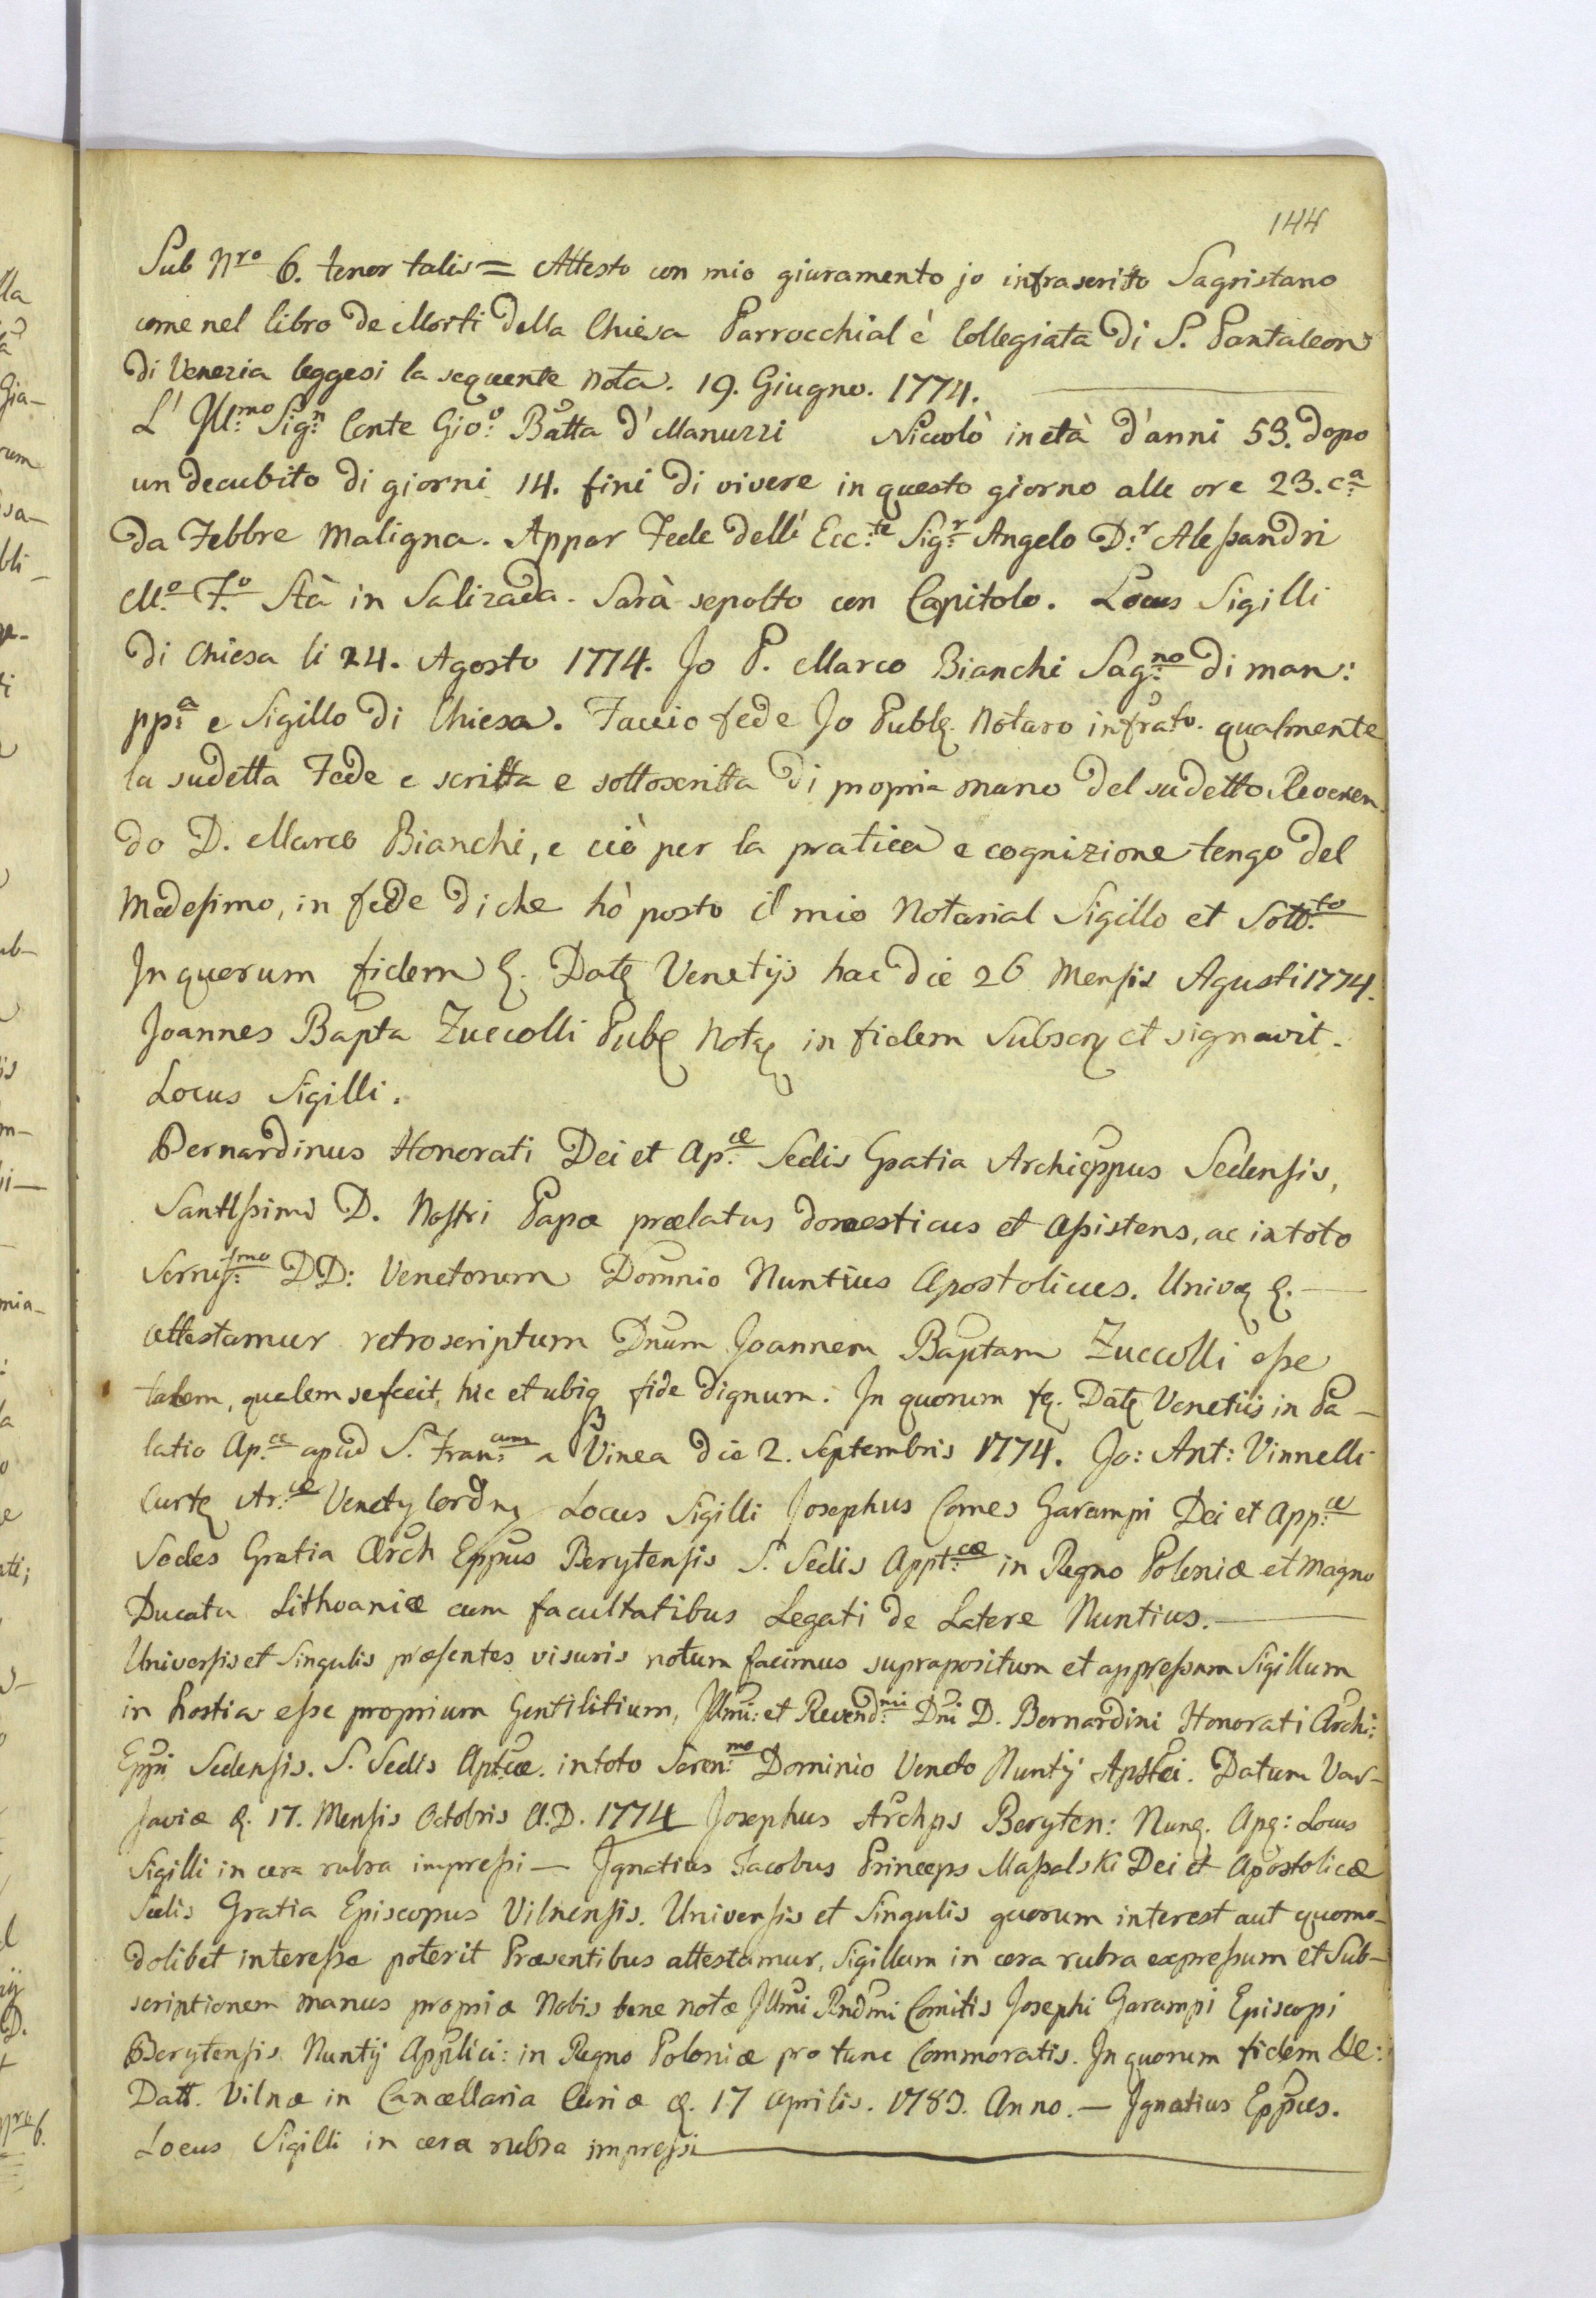 144
Sub Nro 6. tenor talis = Attesto con mio giuramento jo infrascritto Sagristano
come nel libro de Morti della Chiesa Parrocchial è Collegiata di S. Pantaleon
di Venezia leggesi la sequente nota. 19. Giugno. 1774.
L' Illmo Sign Conte Gioo Batta d' Manuzzi Niccolò in età d'anni 53. dopo
un decubito di giorni 14. fini di vivere in questo giorno alle ore 23. ca
da Febbre Maligna. Appar Fede delli Eccte Sigr Angelo Dr Aleſsandri
Mo Fo Stà in Salizada. Sarà sepolto con Capitolo. Locus Sigilli
di Chiesa li 24. Agosto 1774. Jo P. Marco Bianchi Sagno di man:
ppa e Sigillo di Chiesa. Faccio fede Jo Publ. Notaro infrato. qualmente
la sudetta Fede e scritta e sottoscritta di propria mano del sudetto Reveren
do D. Marco Bianchi, e ciò per la pratica e cognizione tengo del
Medeſimo, in fede di che hò posto il mio Notarial Sigillo et Sottto
In quorum fidem &. Dat Venetijs hac die 26 Menſis Agusti 1774.
Joannes Bapta Zuccolli Pub Not in fidem Subscr et signavit.
Locus Sigilli.
Bernardinus Honorati Dei et Apcæ Sedis Gratia Archieppus Sedenſis,
Santiſsimi D. Noſtri Papæ prælatus domesticus et Aſsistens, ac in toto
Serniſsmo DD: Venetorum Domnio Nuntius Apostolicus. Univ &.
attestamur retroscriptum Dnum Joannem Baptam Zuccolli eſse
talem, qualem se fecit, hic et ubiq fide dignum. In quorum f. Dat Venetiis in Pa-
latio Apcæ apud S. Francum a Vinea die 2. Septembris 1774. Jo: Ant: Vinnelli
Curt Arcæ Venety Cordn Locus Sigilli Josephus Comes Garampi Dei et Appcæ
Sedes Gratia Arch Eppus Berytenſis S. Sedis Apptcæ in Regno Poloniæ et Magno
Ducatu Lithvaniæ cum facultatibus Legati de Latere Nuntius.
Univerſis et Singulis præſentes visuris notum facimus suprapositum et appreſsum Sigillum
in hostia eſse proprium Gentilitium, Illmi: et Revendmi Dni D. Bernardini Honorati Archi:
Eppi Sedenſis. S. Sedis Aptcæ. in toto Serenmo Dominio Veneto Nuntij Apstci. Datum Var-
ſaviæ d. 17. Menſis Octobris A.D. 1774 Josephus Archps Beryten: Nun. Ap: Locus
Sigilli in cera rubra impreſsi — Ignatius Jacobus Princeps Maſsalski Dei et Apostolicæ
Sedis Gratia Episcopus Vilnenſis. Univerſis et Singulis quorum interest aut quomo-
dolibet intereſse poterit Præsentibus attestamur, Sigillum in cera rubra expreſsum et Sub-
scriptionem manus propriæ Nobis bene notæ Illmi Rndmi Comitis Josephi Garampi Episcopi
Berytenſis Nuntij Applici: in Regno Poloniæ pro tunc Commoratis. In quorum fidem &c:
Datt. Vilnæ in Cancellaria Curiæ d. 17 Aprilis. 1783. Anno. — Ignatius Eppus.
Locus Sigilli in cera rubra impreſsi